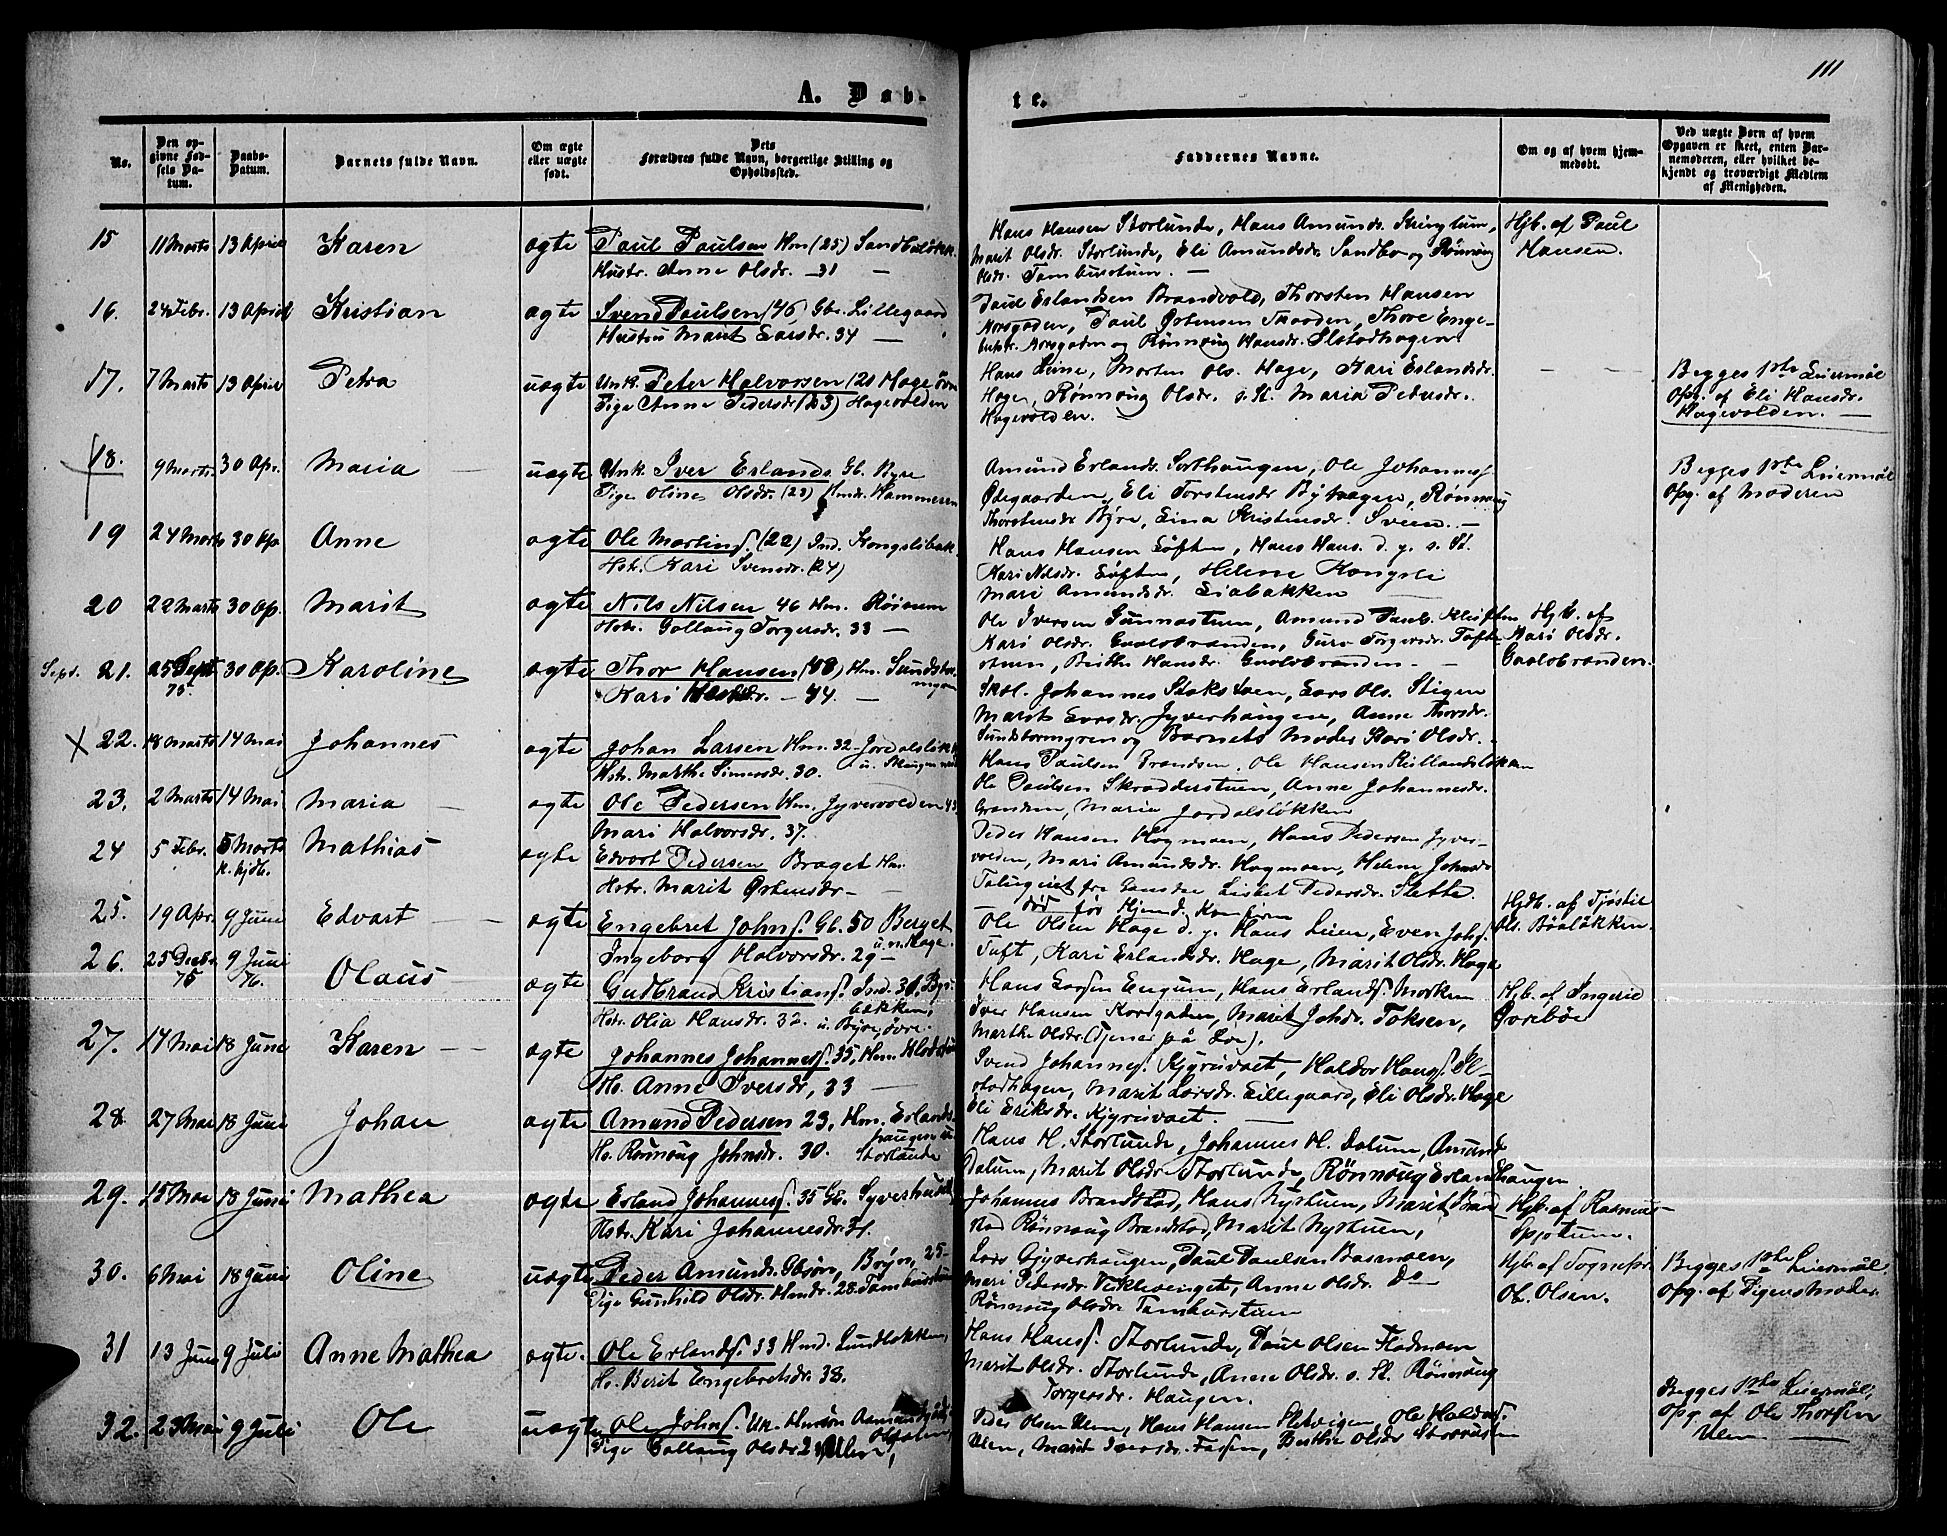 111
A. Døb-
te.
No.
Den op-
givne Fød-
sels Da-
tum.
Daabs-
Datum.
Barnets fulde Navn.
Om ægte
eller uægte
født.
Dets
Forældres fulde Navn, borgerlige Stilling og
Opholdssted.
Faddernes Navne.
Om og af hvem hjem-
medøbt.
Ved uægte Børn af hvem
Opgaven er skeet, enten Bar-
nemoderen, eller hvilket be-
kjendt og troværdigt Medlem
af Menigheden.
15 11 Marts 13 April Karen ægte Paul Paulsen Hm (25)
Hustr. Anne Olsdr. — 31 —
Hans Hansen Storlunde, Hans Amunds.
Marit Olsdr. Storlunde, Eli Amundsdr. Sandbo og Rønnoug
Olsdr. Tamburstuen. —
Hjb. af Paul
Hansen.
16. 24 Febr. 13 April Kristian ægte Svend Paulsen (46) Gbr. Lillegaard
Hustru Marit Larsdr. 34 —
Paul Erlandsen Brandvold, Thorsten Hansen
Morsgaden, Paul Østensen Skaaden, Thore Enge-
Morsgaden og Rønnoug Hansdr. Slstadhagen
17. 7 Marts 13 April Petra uægte Unk. Peter Halvorsen (21 Hage øvre
Pige Anne Pedersdr (23) Hagevolden
Hans Lune, Morten Ols. Hage, Kari Erlandsdr.
Hage, Rønnoug Olsdr. s. St. Maria Pedersdr.
Hagevolden.
Begges 1ste Leiermål
Opg. af Eli Hansdr.
Hagevolden. —
18. 9 Marts 30 Apr. Maria — uægte Unk. Iver Erlands. Gb. Byre
Pige Oline Olsdr. (23) Hmdr. Hammeren
Amund Erlands. Sorthaugen, Ole Johannes
Ødegaarden, Eli Torstensdr Byhagen, Rønnoug
Thorstensdr Byre, Lina Kristensdr. Sveen. —
Begges 1ste Leiermål
Opg. af Moderen
19 24 Marts 30 Ap. Anne ægte Ole Martins (22) Ind. Kongslibak.
Hstr. Kari Svensdr. (24)
Hans Hansen Løften, Hans Hans. d. y. s. St.
Kari Nilsdr. Løften, Helene Kongsli
Mari Amundsdr. Liabakken —
20 22 Marts 30 Ap. Marit ægte Nils Nilsen 46 Hm. Røisum
Hstr. Gollaug Torgersdr. 33 —
Ole Iversen Gunnastuen, Amund Paul. Kleiften
Kari Olsdr. Gaalobranden, Guro Torgersdr. Tofte
stuen, Berthe Hansdr. Gaalobranden. —
Hjb. af
Kari Olsdr.
Gaalobranden.
Sept. 21. 25 Sept. 75 30 Ap. Karoline ægte Thor Hansen (48) Hm.
Kari — 44. —
Skol. Johannes Stoksveen, Lars Ols. Stigen
Marit Larsdr. Jyverhaugen, Anne Thorsdr.
og Barnets Moder Kari Olsdr. —
X 22. 18 Marts 14 Mai Johannes ægte Johan Larsen Hm. 32. Jordalsløkk.
Hstr. Marthe Simensdr. 30.
Hans Paulsen Trandsen, Ole Hansen
23. 2 Marts 14 Mai Maria — ægte Ole Pedersen Hm. Jyvervolden 43
Mari Halvorsdr. 37.
Ole Paulsen Skrædderstuen, Anne Johannesdr.
Granden, Maria Jordalsløkken
24 5 Febr. 5 Marts
k. hjdb. Mathias ægte Edvart Pedersen Braget Hm.
Hstr. Marit Østensdr — —
Peder Hansen Hagmoen, Hans Pedersen Jyver-
volden, Mari Amundsdr. Hagmoen, Helene Johns.
Lisbet Pedersdr. Slette.
død før
25. 19 Apr. 9 Juni Edvart — ægte Engebret Johns. Gb. 50 Berget
Ingeborg Halvorsdr. 29 — u. n. Hage.
— Ole Olsen Hage d. y. Hans Lien, Even Johs.
Tuft, Kari Erlandsdr. Hage, Marit Olsdr. Hage
Hjdb. af Tjøstil
Ols. Böaløkken.
26. 25 Decbr. 75 9 Juni 76. Olaus — ægte Gudbrand Kristians. Ind. 31. Byr-
bakken,
Hstr. Olia Hansdr. 32 u. Byre, øvre.
Hans Larsen Engum, Hans Erlands. Morken
Iver Hansen Kordgaden, Marit Johdr. Toksen,
Marthe Olsdr. (Tjener på Loe).
Hjb. af Ingerid
Øvrebøe
27. 14 Mai 18 Juni Karen — ægte Johannes Johannes. 35, Hm.
H. Anne Iversdr, 33 —
Svend Johannes. Kjyrisvaet, Haldor Hans. Sl-
stadhagen, Marit Larsdr. Lillegaard, Eli Olsdr. Hage
Eli Eriksdr. Kjyrisvaet. —
28. 27 Mai 18 Juni Johan ægte Amund Pedersen 23, Hm. Erlands-
haugen u.
H. Rønnoug Johnsdr. 30. Storlunde
Hans H. Storlunde, Johannes H. Dalum, Amund
Dalum, Marit Olsdr. Storlunde, Rønnoug Erlandshaugen.
29. 15 Mai 18 Juni Mathea ægte Erland Johannes. 35 Gb.
Hstr. Kari Johannesdr. 41.
Johannes Brandstad, Hans Nystuen, Marit Brand-
stad Rønnoug Brandstad, Marit Nystuen,
Hjb. af Rasmus
Spjotum.
30. 6 Mai 18 Juni Oline uægte Peder Amunds. Gbsøn, Böyn, 25 —
Pige Gunhild Olsdr. Hmdr. 28. Tamburstuen
Lars Gjyverhaugen, Paul Paulsen Basmoen,
Mari Pedersdr. Vekklevenget, Anne Olsdr. Do —
Rønnoug Olsdr. Tamburstuen
Hjb. af Sognepr.
Ol. Olsen.
Begges 1ste Leiermål.
Opg. af Pigens Moder.
31 13 Juni 9 Juli Anne Mathea ægte. Ole Erlands. 33 Hmd. Lundløkken,
H. Berit Engebretsdr. 38.
Hans Hans. Storlunde, Paul Olsen Fladmoen
Marit Olsdr. Storlunde, Anne Olsdr. s. St. Rønnoug
Torgersdr. Haugen.
32. 23 Mai 9 Juli Ole uægte Ole Johns. Un. Hmsøn
Pige Gollaug Olsdr. 24 Ulen,
Peder Olsen Ulen, Hans Hansen Sletvigen, Ole Haldors.
Ulen, Marit Iversdr. Fossen, Berthe Olsdr
Begges 1ste Leiermål,
Opg. af Ole Thorsen
Ulen —